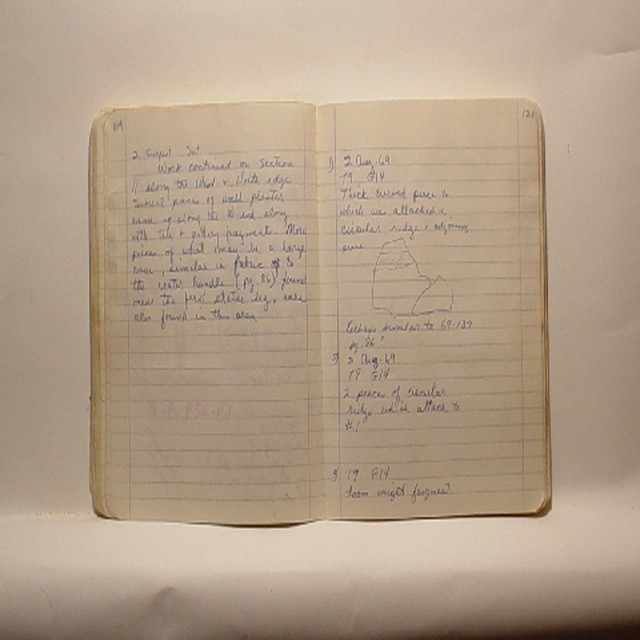 2 August Sat
Work continued on Section
11 along the West & North edge
Several pieces of wall plaster
came up along the N end along
with tile & pottery fragments. More
pieces of what may be a large
vase, similar in fabric to
the center handle (pg. 86) found
near the first statue leg, were
also found in this area
121
1) 2 Aug. 69
T9 G14
Thick curved piece to
which was attached a
circular ridge & adjoining
piece
Perhaps similar to 69-139
pg. 86?
2) 2 Aug. 69
T9 G14
2 pieces of circular
ridge which attach to
#1
3) T9 G14
Loom weight fragment